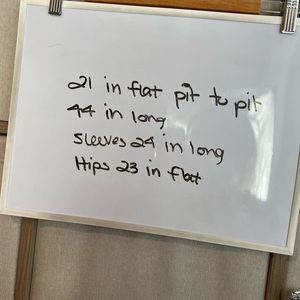 21 in flat pit to pit
44 in long
Sleeves 24 in long
Hips 23 in flat